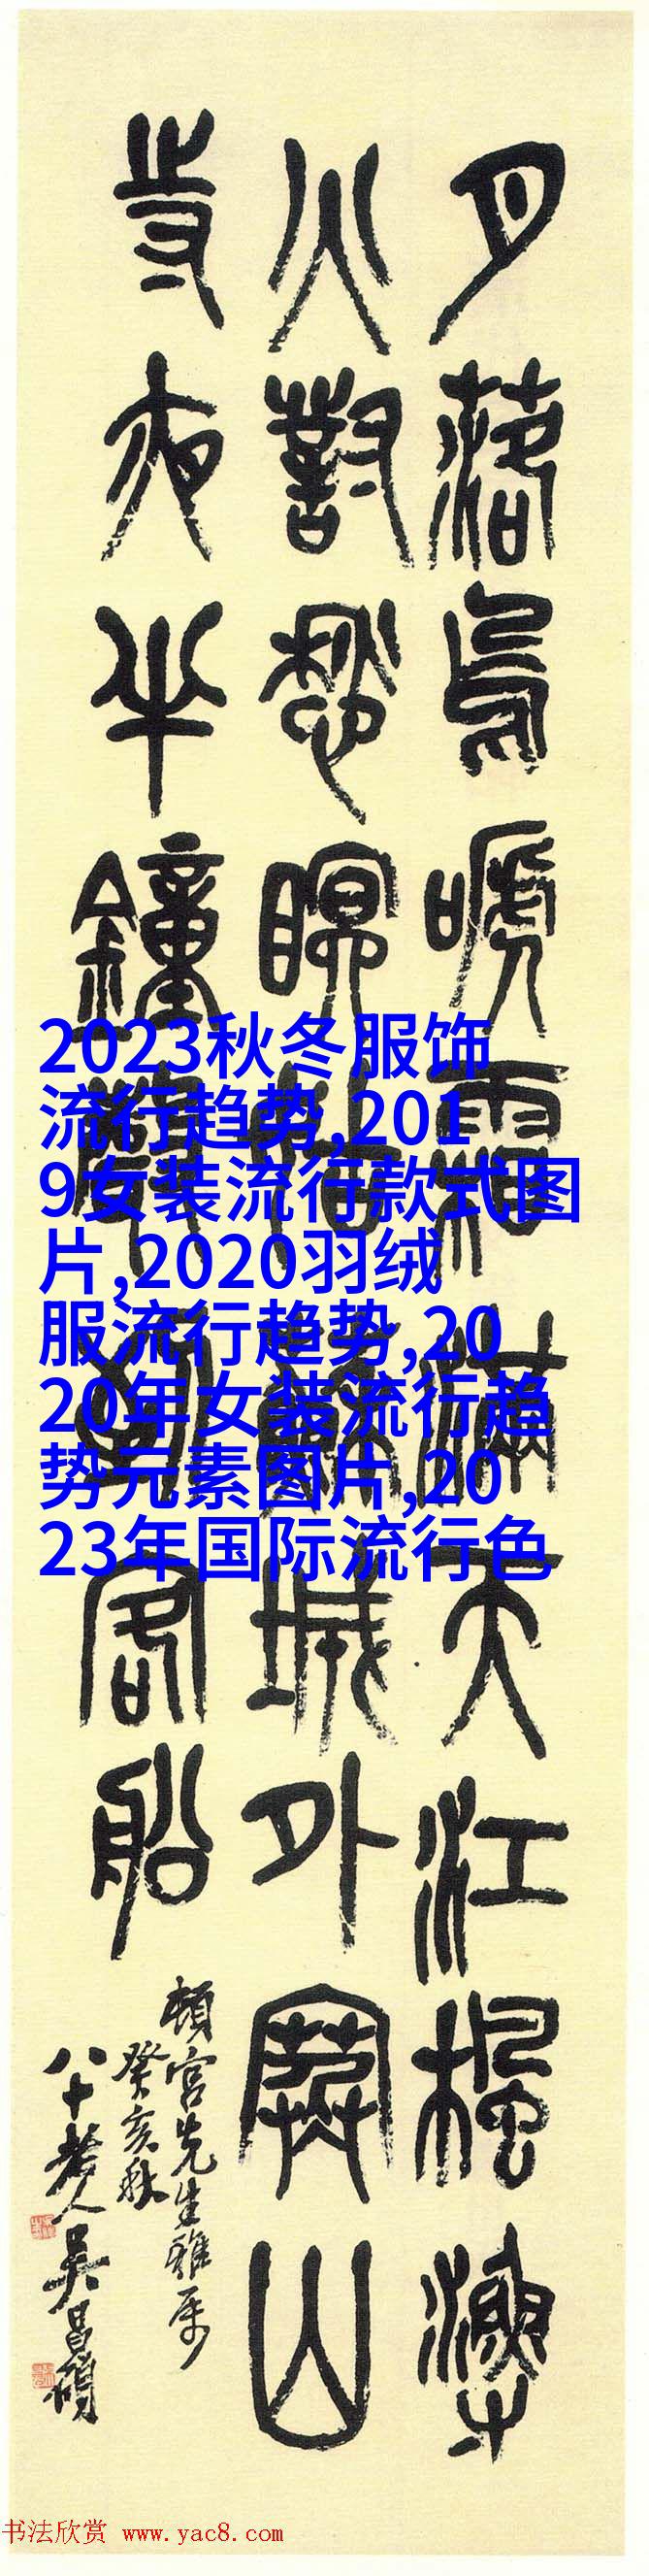 月落烏嗁霜滿天江楓漁
火對愁眠姑蘇城外寒山
寺夜半鐘聲到客船
頓宮先生雅屬
癸亥秋
八十老人吳昌碩
2023秋冬服饰
流行趋势,201
9女装流行款式图
片,2020羽绒
服流行趋势,20
20年女装流行趋
势元素图片,20
23年国际流行色
书法欣赏 www.yac8.com